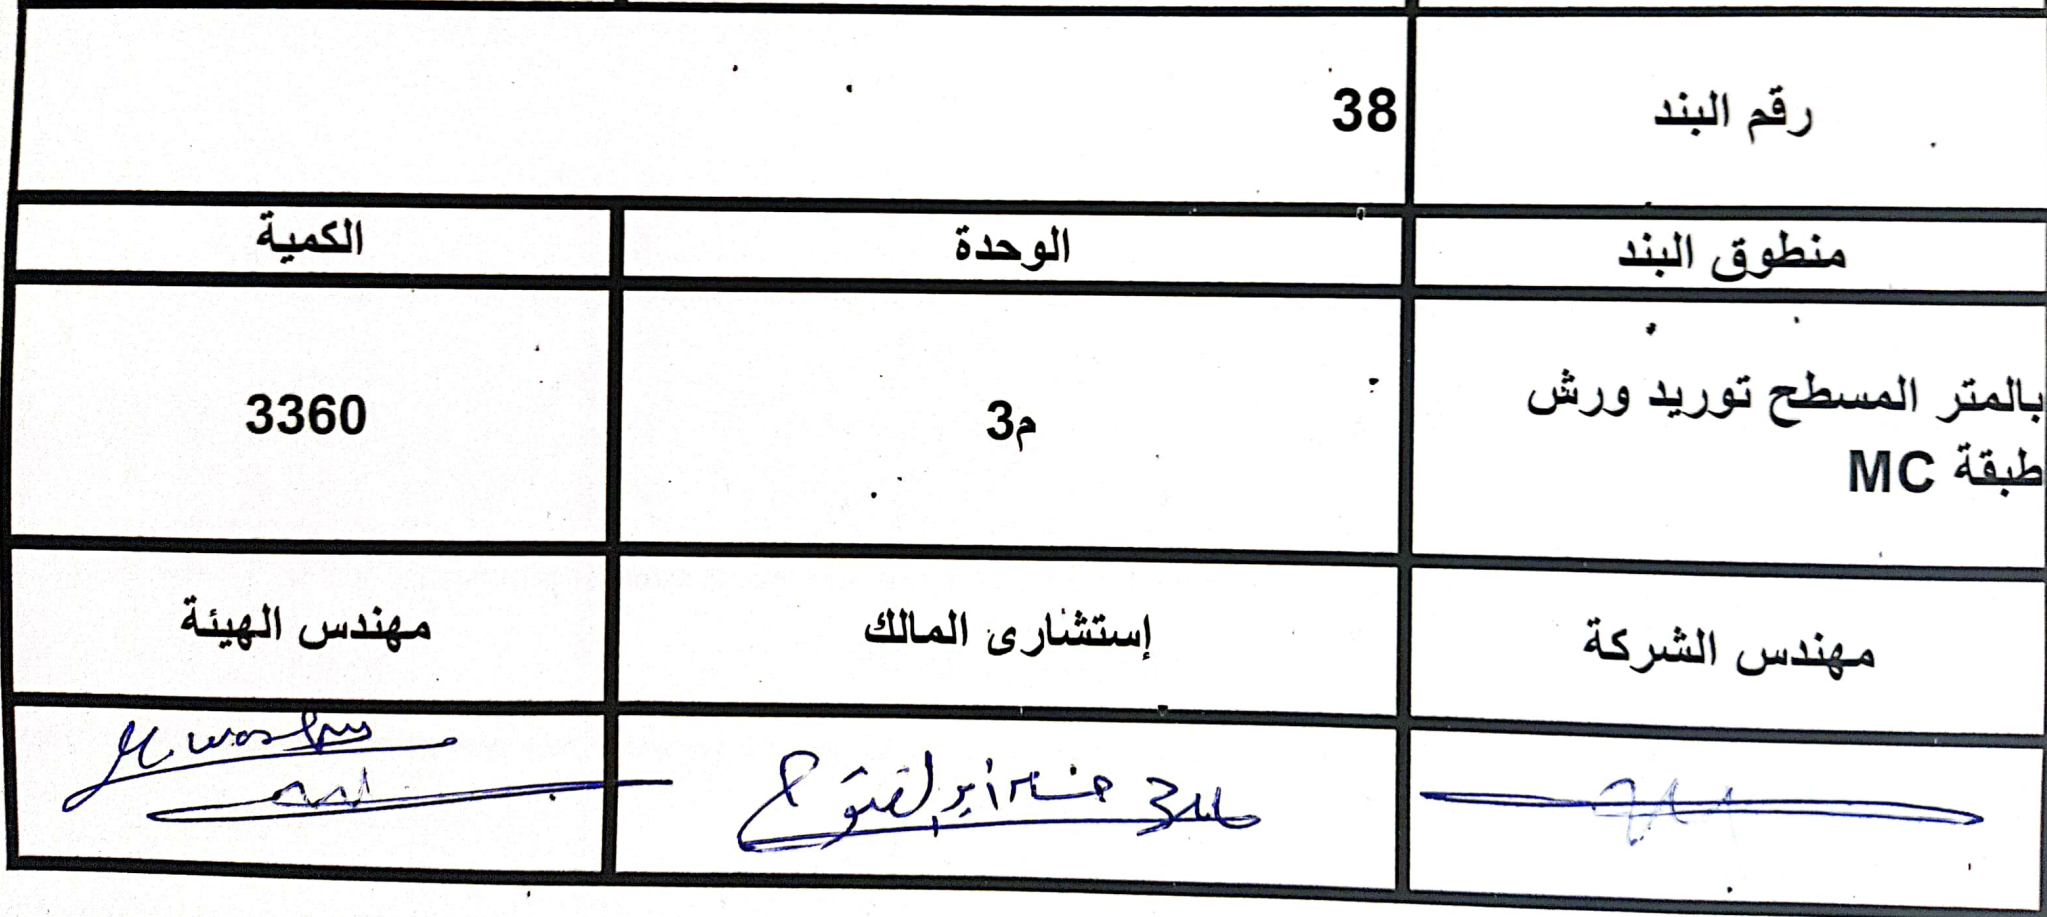 رقم البند 38
منطوق البند الوحدة الكمية
بالمتر المسطح توريد ورش م3 3360
طبقة MC
مهندس الشركة إستشارى المالك مهندس الهيئة